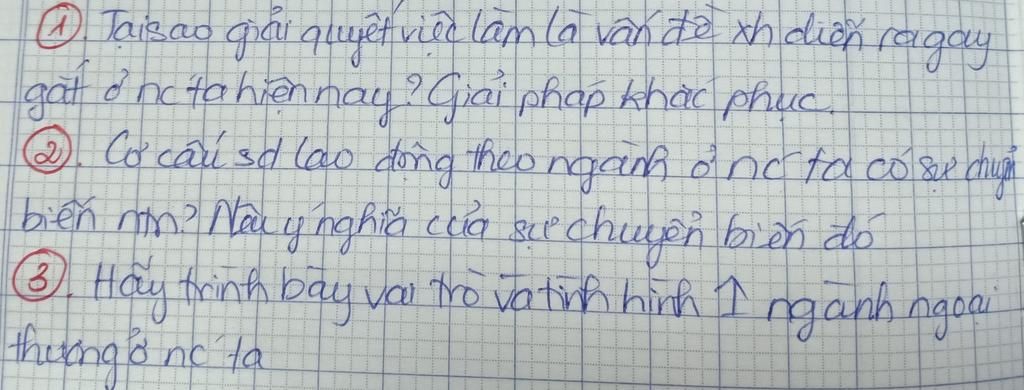 ①. Tại sao giải quyết việc làm là vấn đề xh diễn ra gay
gắt ở nc ta hiện nay? Giải pháp khắc phục.
②. Cơ cấu sd lao động theo ngành ở nc ta có sự chuyển
biến ntn? Nêu ý nghĩa của sự chuyển biến đó
③. Hãy trình bày vai trò và tình hình ↑ ngành ngoại
thương ở nc ta